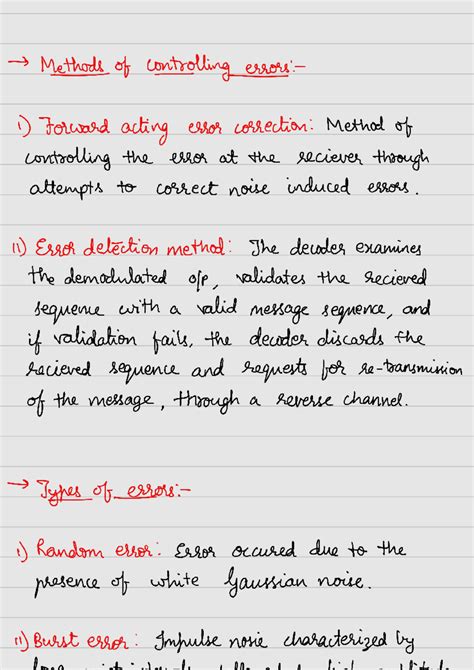 → Methods of controlling errors:-
i) Forward acting error correction: Method of
controlling the error at the reciever through
attempts to correct noise induced errors.
ii) Error detection method: The decoder examines
the demodulated o/p, validates the recieved
sequence with a valid message sequence, and
if validation fails, the decoder discards the
recieved sequence and requests for re-transmission
of the message, through a reverse channel.
→ Types of errors:-
i) Random error: Error occured due to the
presence of white Gaussian noise.
ii) Burst error: Impulse nosie characterized by